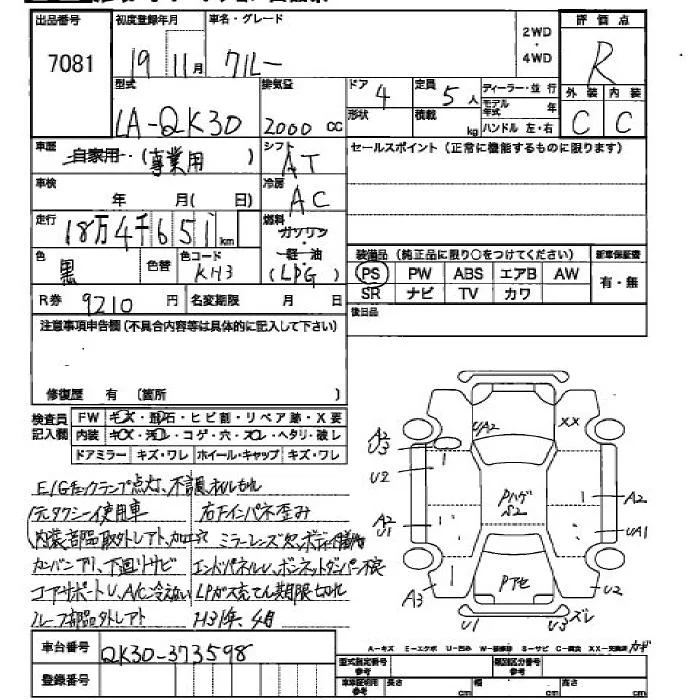 出品番号 初度登録年月 車名・グレード 評価点
7081 19年 11月 クルー 2WD・4WD R
型式 排気量 ドア 4 定員 5人 ディーラー・並行 外装 内装
LA-QK30 2000cc 形状 積載 kg モデル年式 年 ハンドル 左・右 C C
車歴 自家用・(事業用) シフト AT セールスポイント(正常に機能するものに限ります)
車検 年 月( 日) 冷房 AC
走行 18万4千651km 燃料 ガソリン・軽油 (LPG)
色 黒 色替 色コード KH3 装備品(純正品に限り○をつけてください) 新車保証書
PS PW ABS エアB AW 有・無
R券 9210円 名変期限 月 日 SR ナビ TV カワ
注意事項申告欄(不具合内容等は具体的に記入して下さい) 後日品
修復歴 有 (箇所 )
検査員記入欄 FW キズ・飛石・ヒビ割・リペア跡・X要
内装 キズ・汚レ・コゲ・穴・スレ・ヘタリ・破レ
ドアミラー キズ・ワレ ホイール・キャップ キズ・ワレ
UA2 XX
A2 U3 U2 A2 U1 A3 1 PハゲS2 1 A2 UA1 U2
Pアセ U1 U3 ズレ
E/Gチェックランプ点灯、不調、オイルもれ
元タクシー使用車 右下インパネ歪み
内装部品取外しアト、加工穴 ミラーレンズ欠、ボディ
カーバンプリ、下廻りサビ エンドパネルU、ボンネットダンパー不良
コアサポートU、A/C冷えない LPガス充てん期限切れ
ルーフ部品外しアト H31年、4月
車台番号 QK30-373598
登録番号
A-キズ E-エクボ U-凹み W-補修跡 S-サビ C-腐食 XX-交換済
型式指定番号 参考 類別区分番号 参考
車庫証明利用 参考 長さ cm 幅 cm 高さ cm